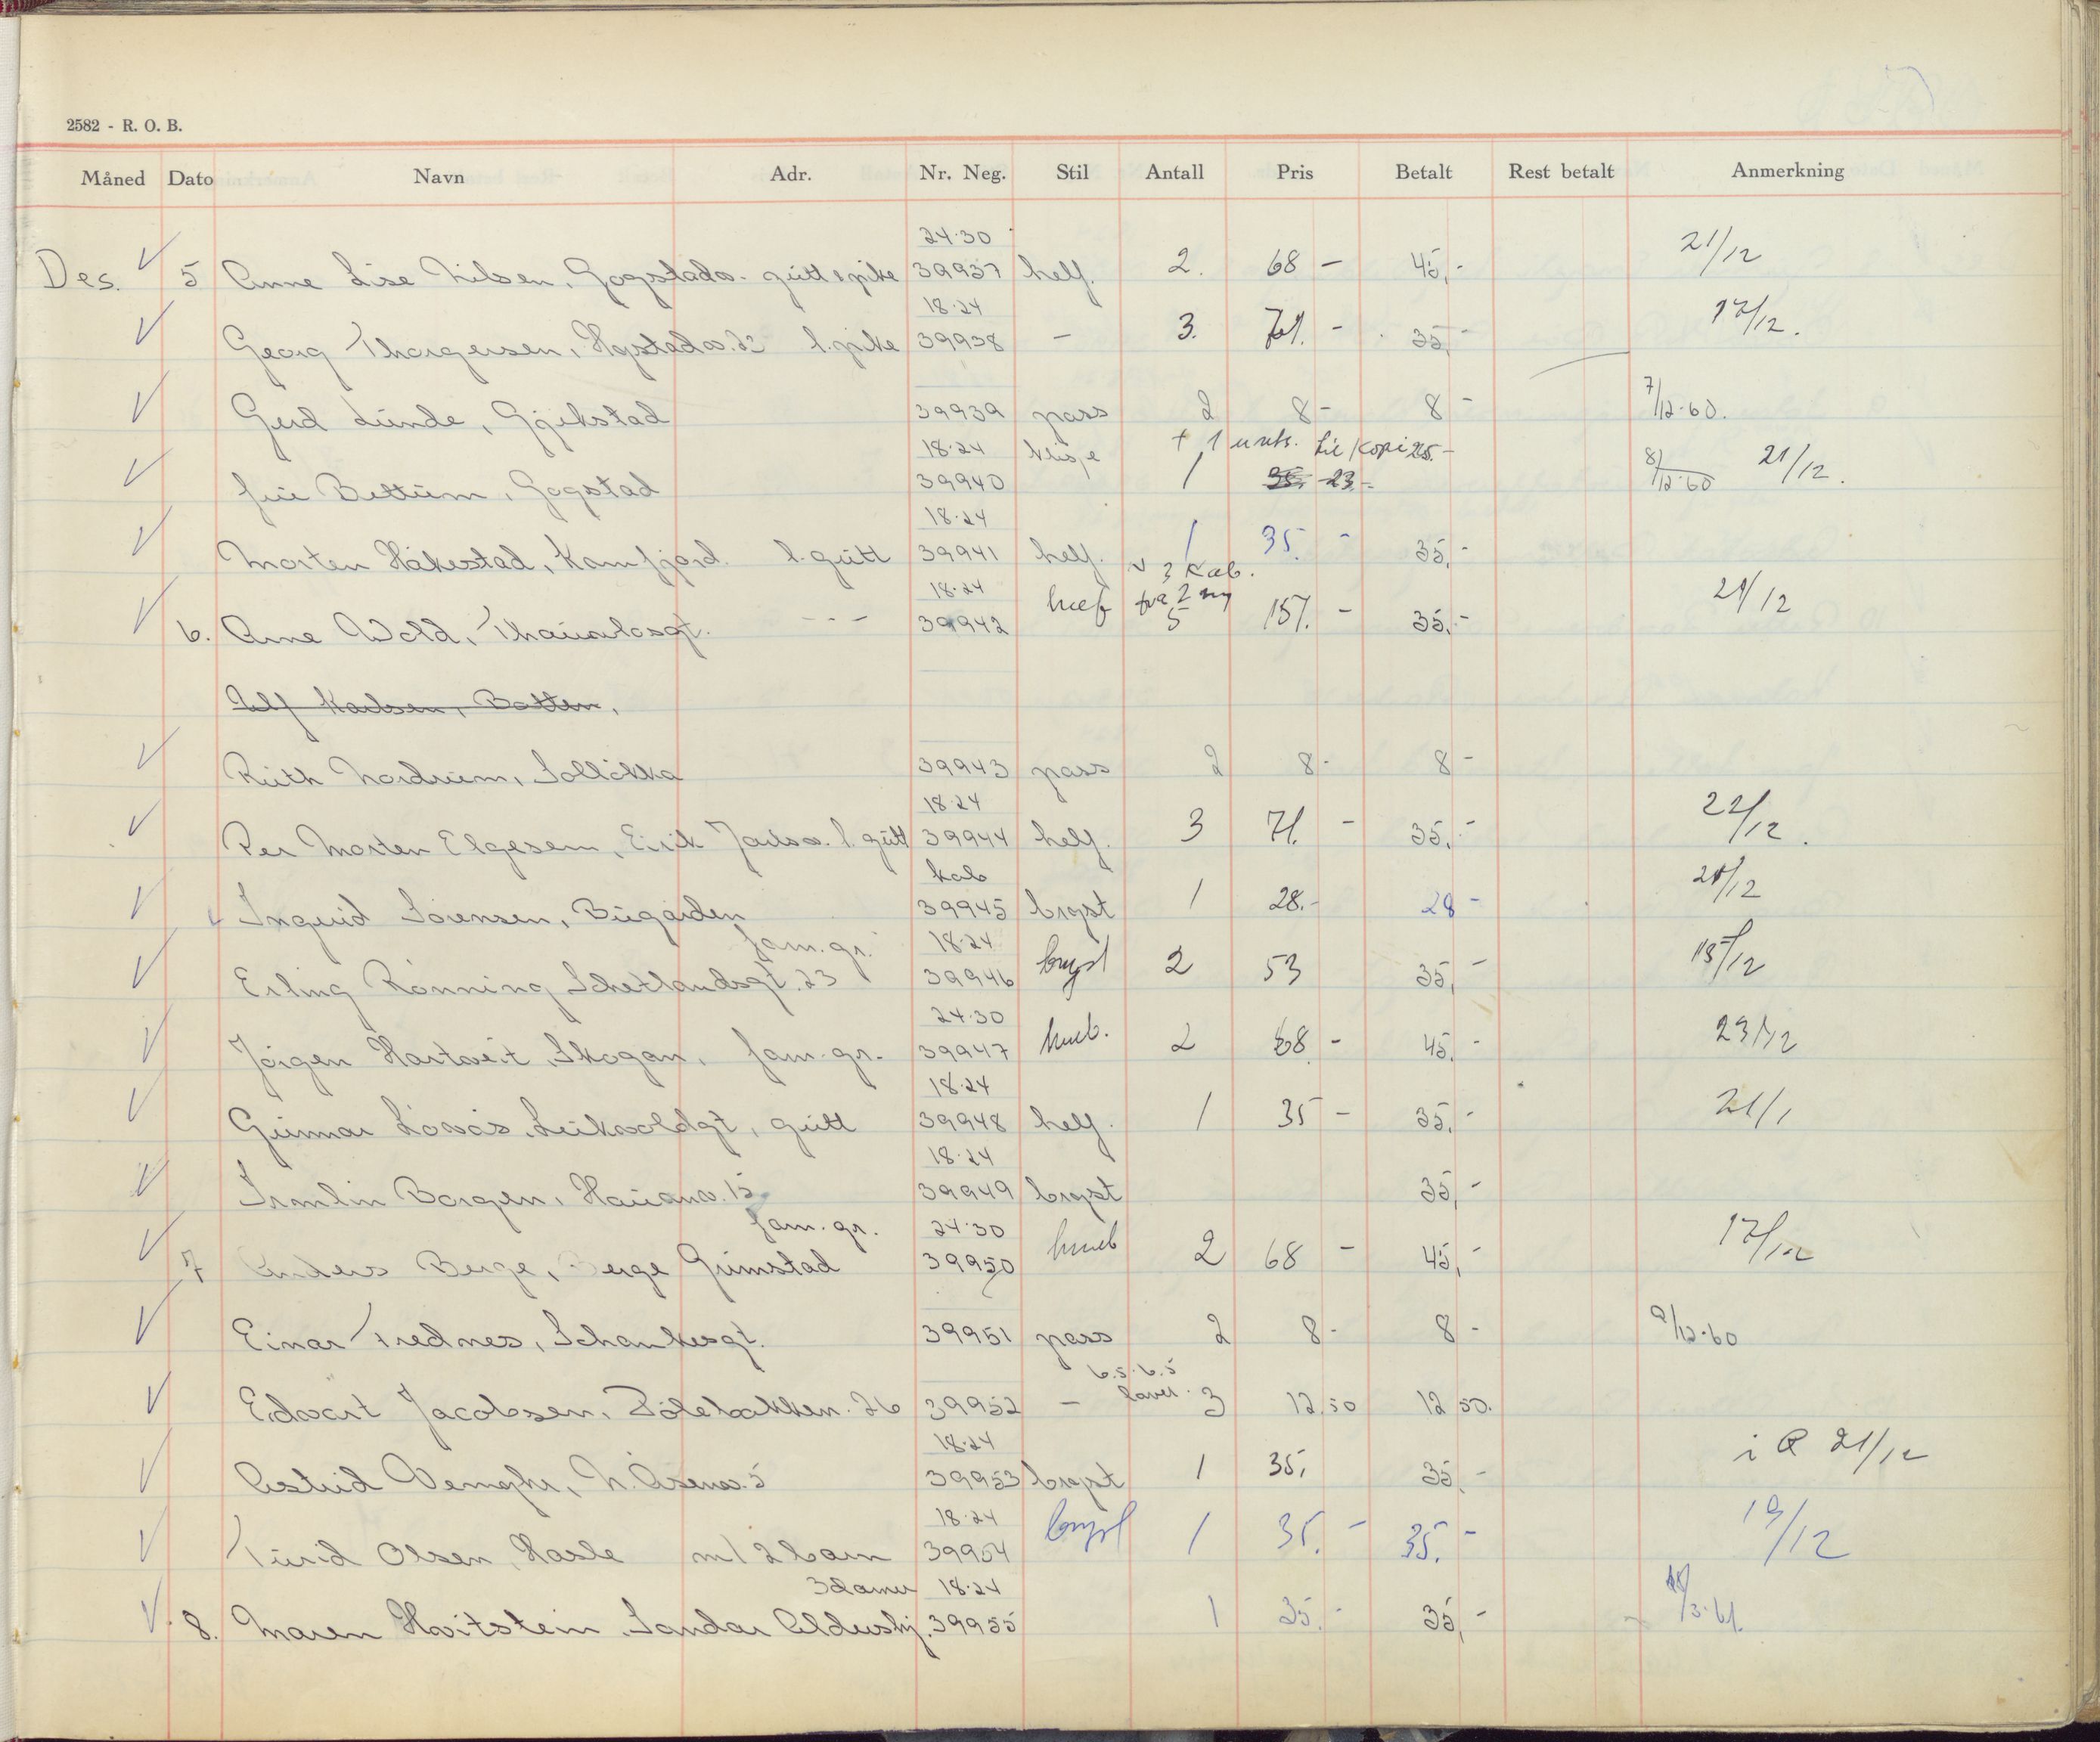 2582 - R. O. B.
Måned Dato Navn Adr. Nr. Neg. Stil Antall Pris Betalt Rest betalt Anmerkning
24·30
Des. 5 Anne Lise Nilsen, Gogstadv. gutt & pike 39937 helf. 2. 68 - 45,- 21/12
18·24
Georg Thorgersen, l. pike 39938 - 3. 71. - 35,- 17/12.
Gerd Lunde, Gjekstad 39939 pass 2 8- 8- 7/12·60.
18·24 klisje + 1 Kopi 25.-
Bettum, Gogstad 39940 1 35. 23.- 8/12·60 21/12.
18·24
Morten Håkestad, Kamfjord. l. gutt 39941 helf. 1 35. - 35,-
18·24 v 3 Kab.
6. Arne Wold, Thaulowsgt. - - - 39942 5 157. - 35,- 21/12
Ulf Karlsen, Botten,
Ruth Nordrum, Solløkka 39943 pass 2 8- 8-
18·24
Per Morten Elgesem, Eirik Jarlsv. l. gutt 39944 helf. 3 71. - 35,- 22/12.
kab
Ingrid Sørensen, Bugården 39945 bryst 1 28.- 28 - 20/12
fam. gr. 18·24
Erling Rønning Schetlandsgt. 23 39946 bryst 2 53 35,- 15/12
24·30
Jørgen Hartveit, Skogan, fam. gr. 39947 kneb. 2 68 - 45,- 23/12
18·24
Gunnar Løvås, gutt 39948 helf. 1 35 - 35,- 21/1
18·24
Irmlin Borgen, Hauanv. 15 39949 bryst 35,-
fam. gr. 24·30
7 Anders Berge, Berge Grimstad 39950 kneb 2 68 - 45,- 17/12
Einar Trednes, Schankesgt. 39951 pass 2 8- 8- 9/12·60
6.5·6.5
Edvart Jacobsen, 26 39952 - laver. 3 12,50 12 50.
18·24
Astrid N. Åsenv. 5 39953 bryst 1 35, 35,- i R 21/12
18·24
Turid Olsen, Hasle m/ 2 barn 39954 bryst 1 35. - 35. - 19/12
3 damer 18·24
8. Maren Hvitstein, Sandar Aldershj. 39955 1 35,- 35,- /3·61.